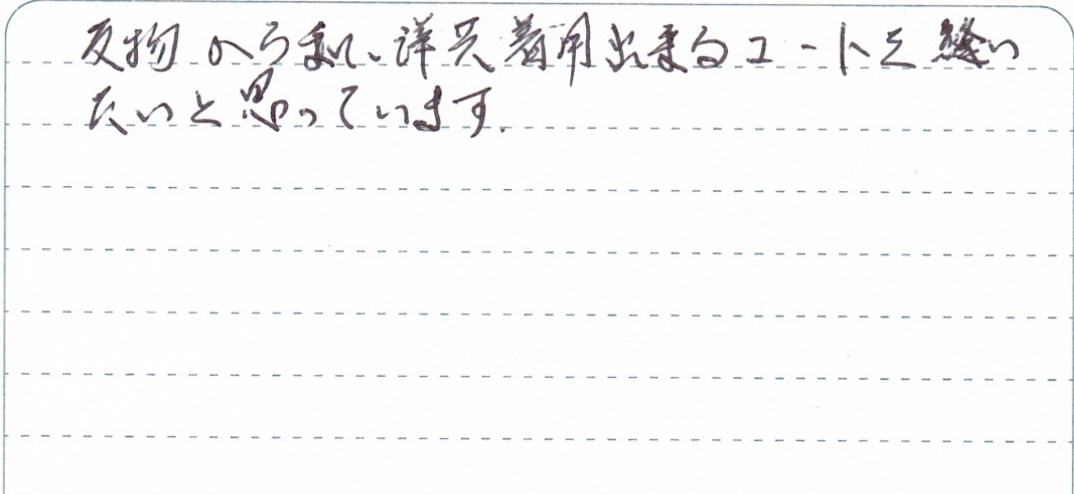 反物から和、洋共着用出来るコートを縫い
たいと思っています。